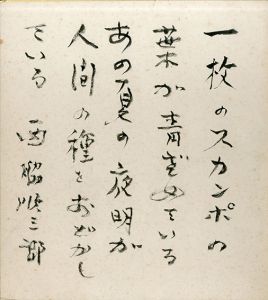 一枚のスカンポの
葉が青ざめている
あの夏の夜明が
人間の種をおどかし
ている　西脇順三郎